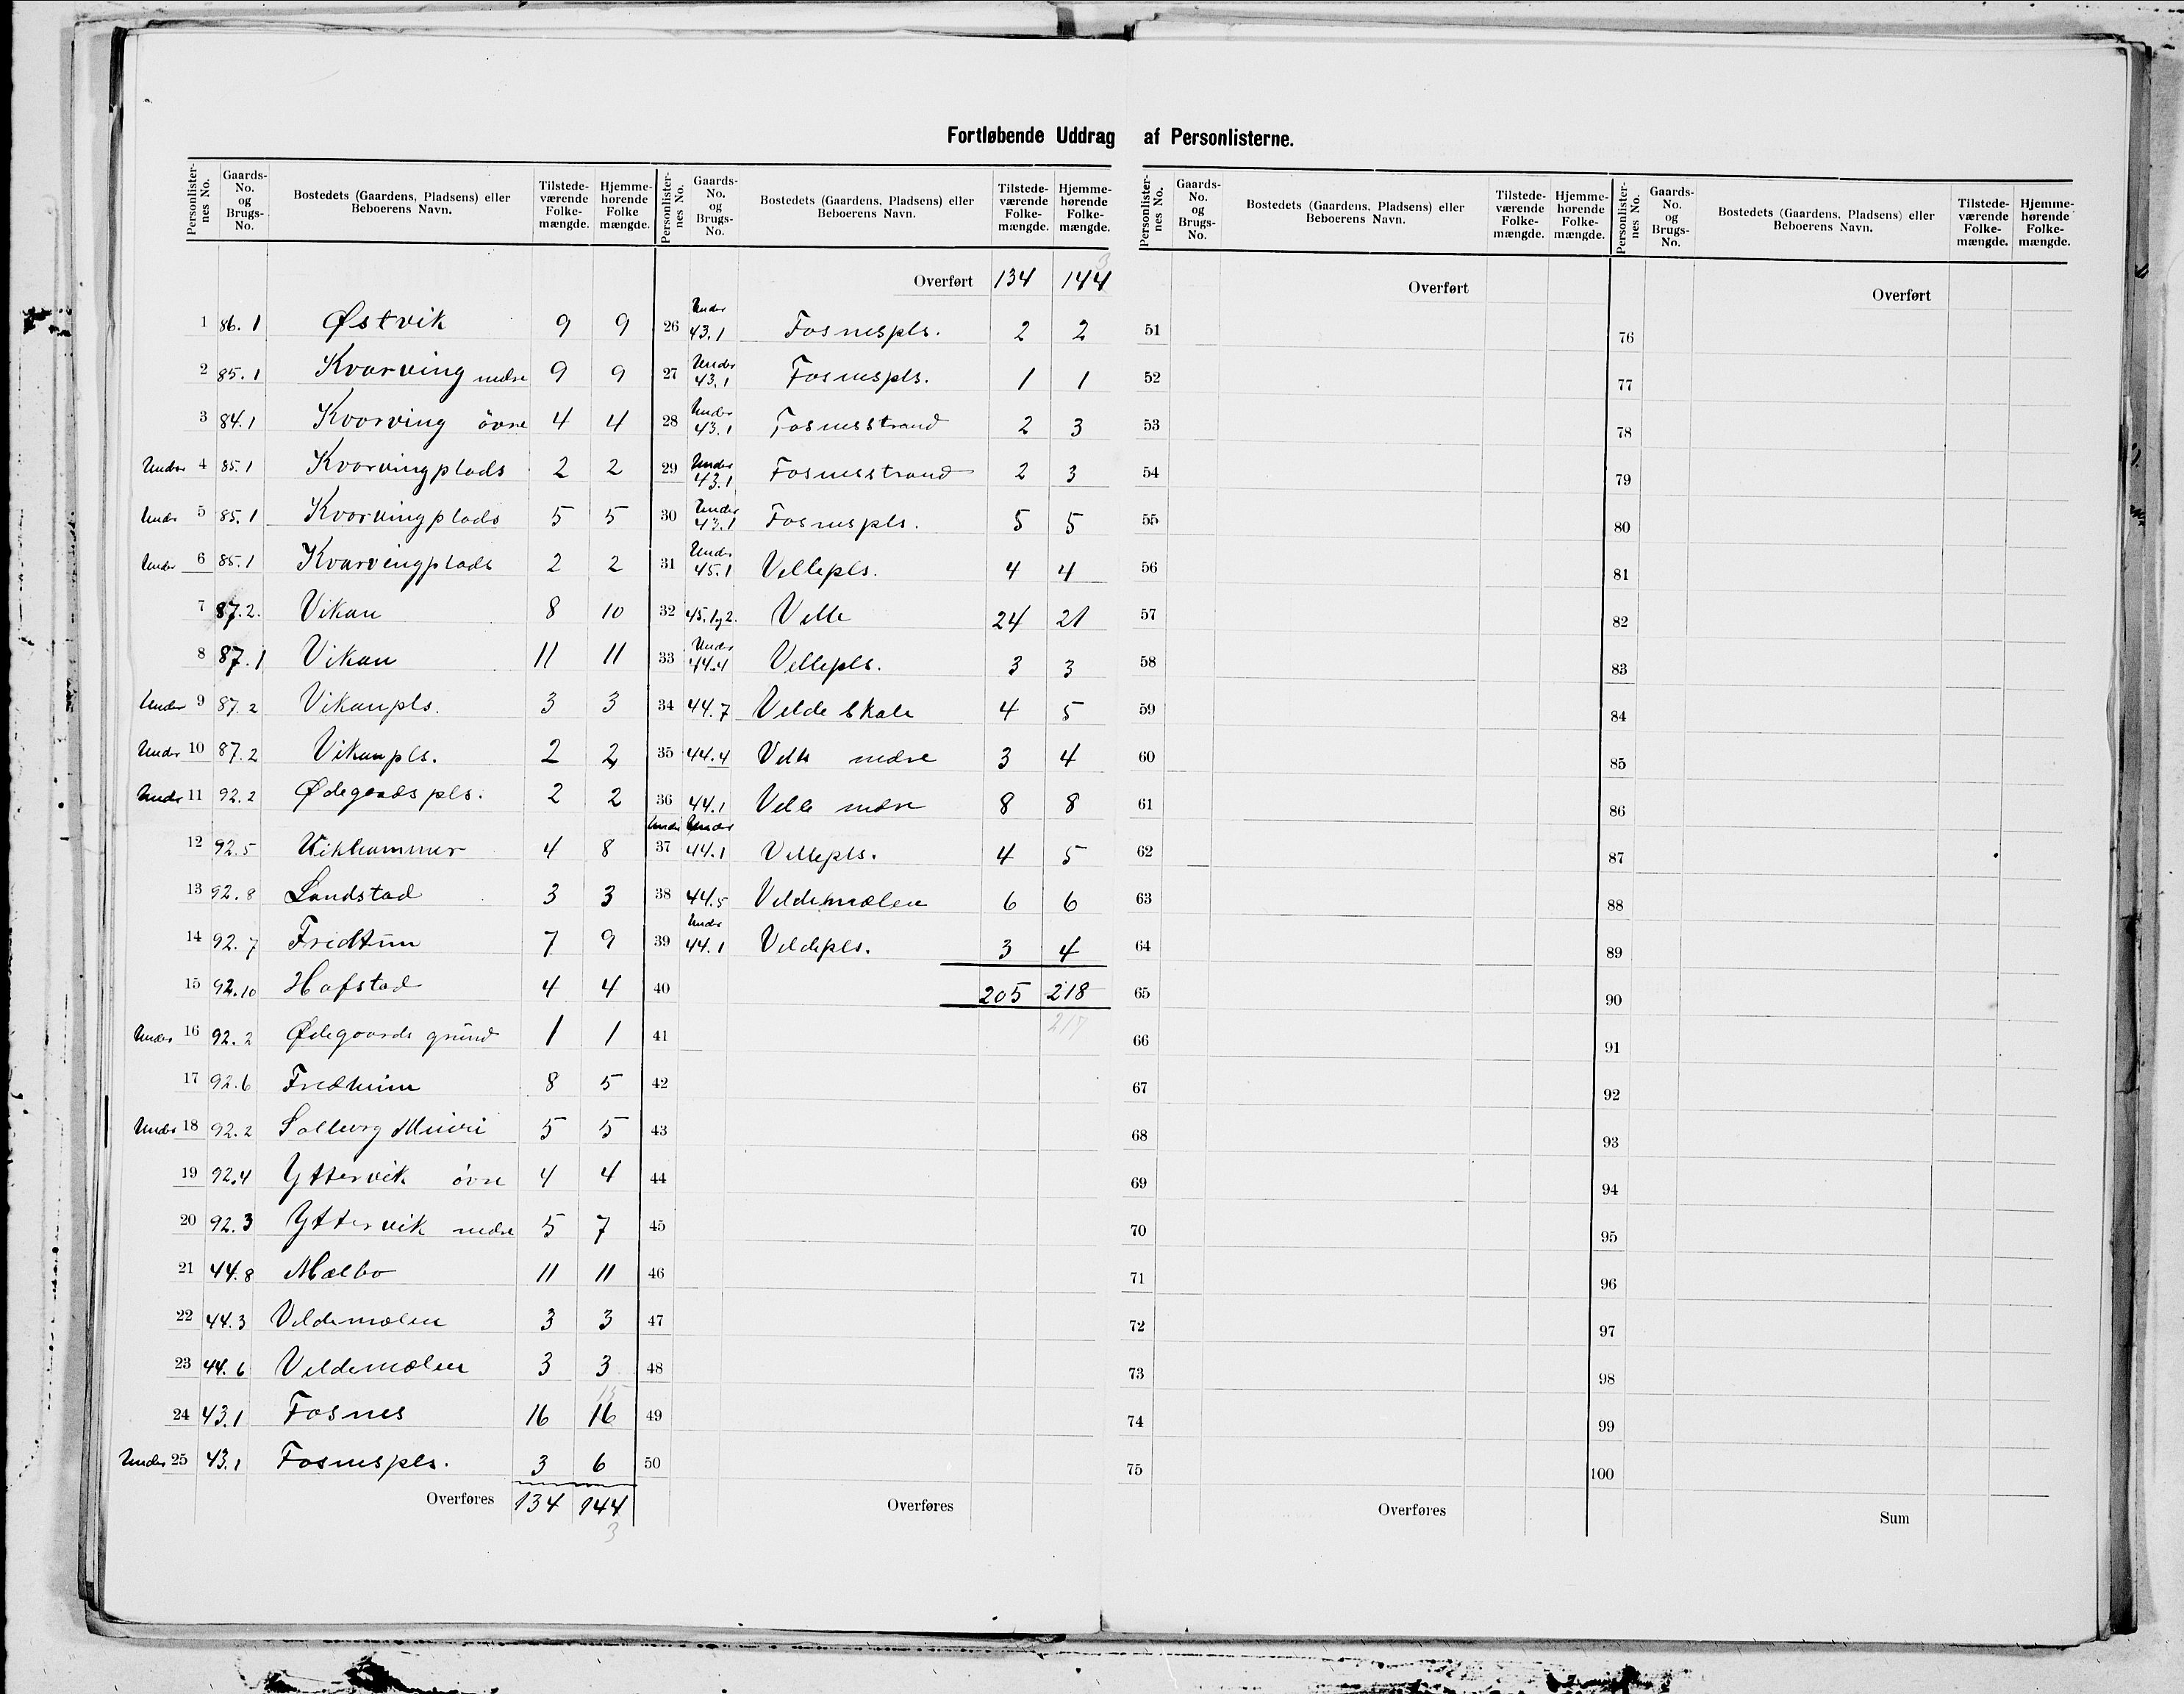 Fortløbende Uddrag af Personlisterne.
Personlisternes No. Gaards-No. og Brugs-No. Bostedets (Gaardens, Pladsens) eller Beboerens Navn. Tilstedeværende Folkemængde. Hjemmehørende Folkemængde.
1 86.1 Østvik 9 9
2 85.1 Kvarving nedre 9 9
3 84.1 Kvarving övre 4 4
Under 4 85.1 Kvarvingplads 2 2
Under 5 85.1 Kvarvingplads 5 5
Under 6 85.1 Kvarvingplads 2 2
7 87.2. Vikan 8 10
8 87.1 Vikan 11 11
Under 9 87.2 Vikanpls. 3 3
Under 10 87.2 Vikanpls. 2 2
Under 11 92.2 Ødegaardspls. 2 2
12 92.5 Vikhammer 4 8
13 92.8 Landstad 3 3
14 92.7 Fridtun 7 9
15 92.10 Hafstad 4 4
Under 16 92.2 Ødegaards grund 1 1
17 92.6 Fredheim 8 5
Under 18 92.2 Solberg 5 5
19 92.4 Yttervik övre 4 4
20 92.3 Yttervik nedre 5 7
21 44.8 Mælbo 11 11
22 44.3 Veldemælen 3 3
23 44.6 Veldemælen 3 3
15
24 43.1 Fosnes 16 16
Under 25 43.1 Fosnespls. 3 6
Overføres 134 144
3
Personlisternes No. Gaards-No. og Brugs-No. Bostedets (Gaardens, Pladsens) eller Beboerens Navn. Tilstedeværende Folkemængde. Hjemmehørende Folkemængde.
3
Overført 134 144
26 Under 43.1 Fosnespls. 2 2
27 Under 43.1 Fosnespls. 1 1
28 Under 43.1 Fosnesstrand 2 3
29 Under 43.1 Fosnesstrand 2 3
30 Under 43.1 Fosnespls. 5 5
31 Under 45.1 Vellepls. 4 4
32 45.1 og 2. Velle 24 21
33 Under 44.4 Vellepls. 3 3
34 44.7 Velde Skole 4 5
35 44.4 Velle nedre 3 4
36 44.1 Velle nedre 8 8
Under 37 Under 44.1 Vellepls. 4 5
38 44.5 Veldemælen 6 6
39 Under 44.1 Veldepls. 3 4
40 205 218
41 217
42
43
44
45
46
47
48
49
50
Overføres
Personlisternes No. Gaards-No. og Brugs-No. Bostedets (Gaardens, Pladsens) eller Beboerens Navn. Tilstedeværende Folkemængde. Hjemmehørende Folkemængde.
Overført
51
52
53
54
55
56
57
58
59
60
61
62
63
64
65
66
67
68
69
70
71
72
73
74
75
Overføres
Personlisternes No. Gaards-No. og Brugs-No. Bostedets (Gaardens, Pladsens) eller Beboerens Navn. Tilstedeværende Folkemængde. Hjemmehørende Folkemængde.
Overført
76
77
78
79
80
81
82
83
84
85
86
87
88
89
90
91
92
93
94
95
96
97
98
99
100
Sum